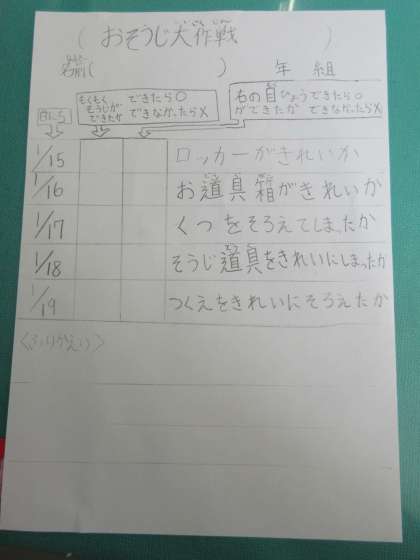 （おそうじ大作戦　）
名前（　）　年　組
もくもくそうじができたか　できたら〇　できなかったら×
右の目ひょうができたか　できたら〇　できなかったら×
日にち
1/15　ロッカーがきれいか
1/16　お道具箱がきれいか
1/17　くつをそろえてしまったか
1/18　そうじ道具をきれいにしまったか
1/19　つくえをきれいにそろえたか
〈ふりかえり〉